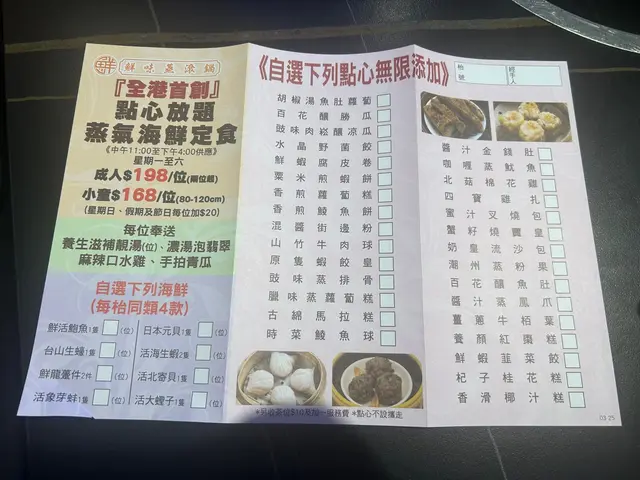 鮮味蒸滾鍋
『全港首創』
點心放題
蒸氣海鮮定食
《中午11:00至下午4:00供應》
星期一至六
成人$198/位(兩位起)
小童$168/位(80-120cm)
(星期日、假期及節日每位加$20)
每位奉送
養生滋補靚湯(位)、濃湯泡翡翠
麻辣口水雞、手拍青瓜
自選下列海鮮
(每枱同類4款)
鮮活鮑魚1隻 (位)
日本元貝1隻 (位)
台山生蠔1隻 (位)
活海生蝦2隻 (位)
鮮龍躉件2件 (位)
活北寄貝1隻 (位)
活象芽蚌1隻 (位)
活大蟶子1隻 (位)
《自選下列點心無限添加》
胡椒湯魚肚蘿蔔
百花釀勝瓜
豉味肉崧釀涼瓜
水晶野菌餃
鮮蝦腐皮卷
粟米煎蝦餅
香煎蘿蔔糕
香煎鯪魚餅
混醬街邊粉
山竹牛肉球
原隻蝦餃皇
豉味蒸排骨
臘味蒸蘿蔔糕
古綿馬拉糕
時菜鯪魚球
*另收茶位$10及加一服務費 *點心不設攜走
枱號
經手人
醬汁金錢肚
咖喱蒸魷魚
北菇棉花雞
四寶雞扎
蜜汁叉燒包
蟹籽燒賣皇
奶皇流沙包
潮州蒸粉果
百花釀魚肚
醬汁蒸鳳爪
薑蔥牛栢葉
養顏紅棗糕
鮮蝦韮菜餃
杞子桂花糕
香滑椰汁糕
03 25